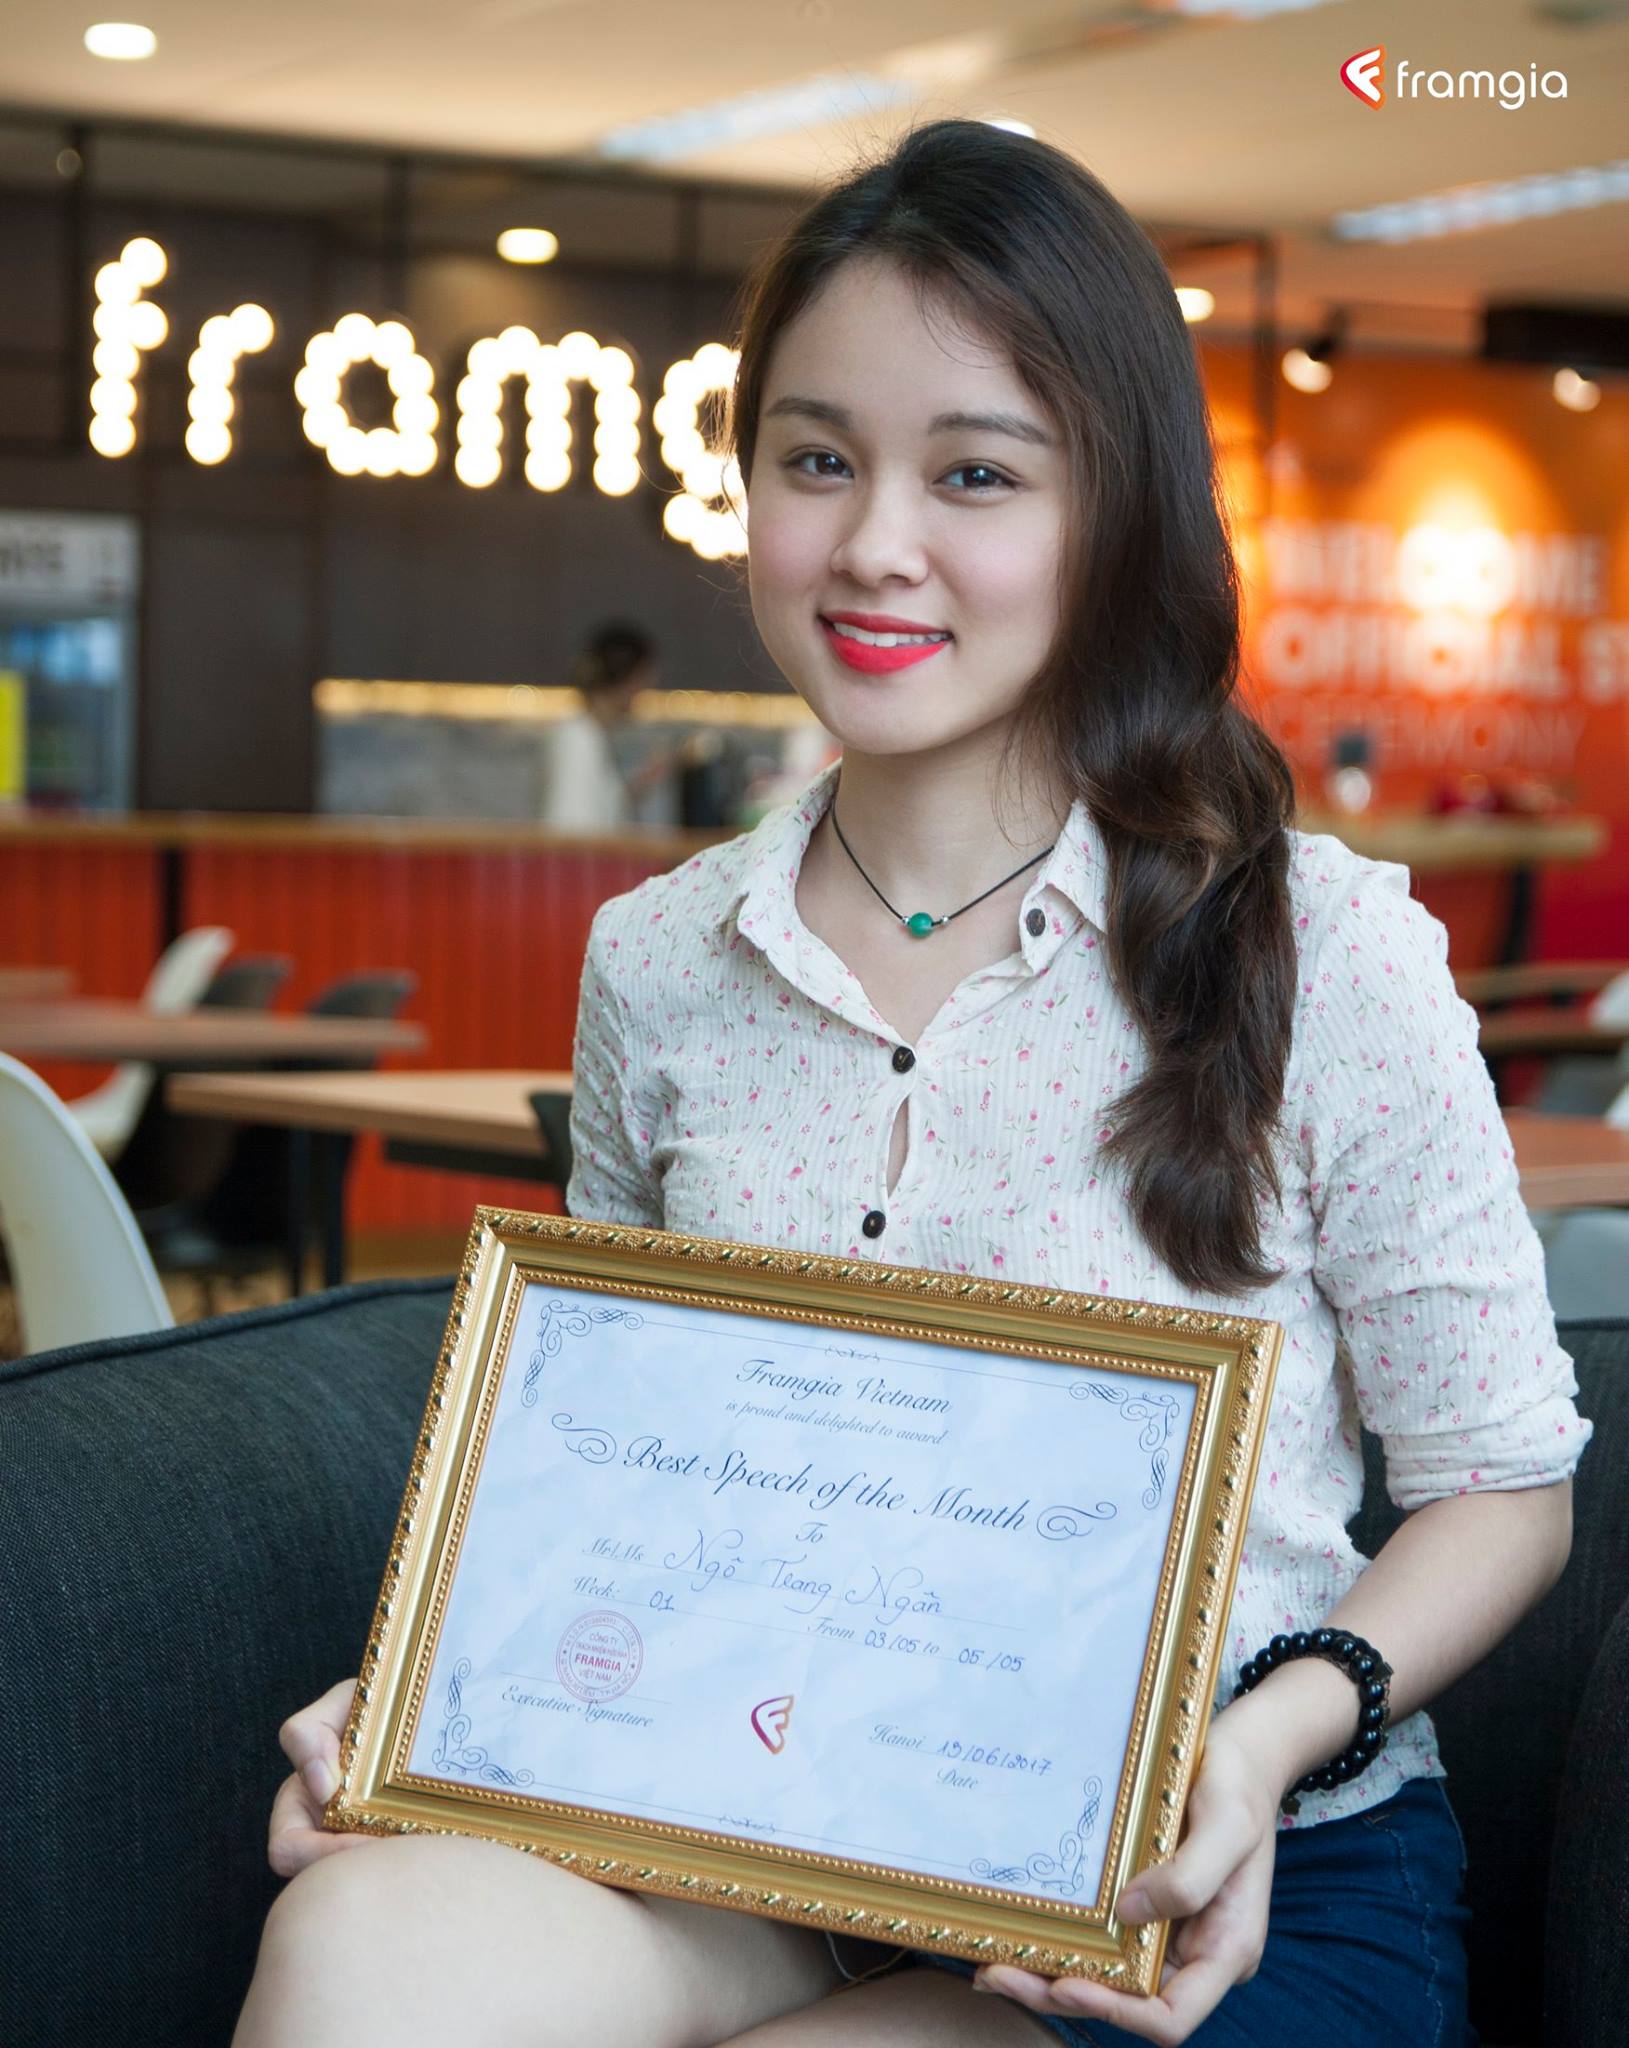 framgia
framg
WELCOME
OFFICIAL
CEREMONY
Framgia Vietnam
is proud and delighted to award
Best Speech of the Month
To
Mr/Ms Ngô Trang Ngân
Week: 01
From 03/05 to 05/05
CÔNG TY
TRÁCH NHIỆM HỮU HẠN
FRAMGIA
VIỆT NAM
Executive Signature
Hanoi 13/06/2017
Date